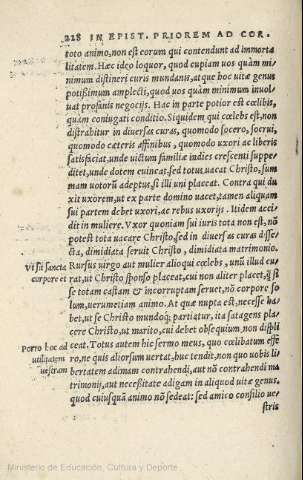 228 IN EPIST. PRIOREM AD COR.
toto animo, non est eorum qui contendunt ad immorta
litatem. Hæc ideo loquor, quod cupiam uos quàm mi
nimum distineri curis mundanis, atque hoc uitæ genus
potißimum amplecti, quod uos quàm minimum inuol
uat profanis negocijs. Hac in parte potior est cœlibis,
quàm coniugati conditio. Siquidem qui cœlebs est, non
distrahitur in diuersas curas, quomodo socero, socrui,
quomodo cæteris affinibus, quomodo uxori ac liberis
satisfaciat, unde uictum familiæ indies crescenti suppe
ditet, unde dotem cuineat, sed totus uacat Christo, sum
mam uotorũ adeptus, si illi uni placeat. Contra qui du
xit uxorem, ut ex parte domino uacet, tamen aliquam
sui partem debet uxori, ac rebus uxorijs. Itidem acci-
dit in muliere. Vxor quoniam sui iuris tota non est, nõ
potest tota uacare Christo, sed in diuersas curas disse
cta, dimidiata seruit Christo, dimidiata matrimonio.
Vt sit sancta Rursus uirgo aut mulier alioqui cœlebs, unũ illud cu
corpore et rat, ut Christo sponso placeat, cui non aliter placet, q̃ si
se totam castam & incorruptam seruet, nõ corpore so
lum, uerumetiam animo. At quæ nupta est, necesse ha
bet, ut se Christo mundoq́; partiatur, ita satagens pla
cere Christo, ut marito, cui debet obsequium, non displi
Porro hoc ad ceat. Totus autem hic sermo meus, quo cœlibatum effe
utilitatem ro, ne quis aliorsum uertat, huc tendit, non quo uobis li
uestram bertatem adimam contrahendi, aut nõ contrahendi ma
trimonij, aut neceßitate adigam in aliquod uitæ genus,
quod cuiusquã animo nõ sedeat: sed amico consilio ue
stris
Ministerio de Educación, Cultura y Deporte